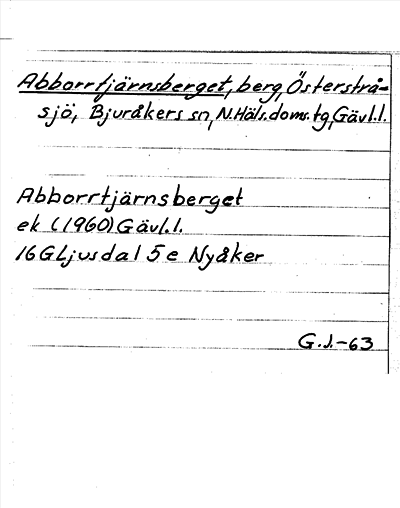 Abborrtjärnsberget, berg, Österstrå-
sjö, Bjuråkers sn, N.Häls.doms.tg, Gävl.l.
Abborrtjärnsberget
ek (1960) Gävl.l.
16G Ljusdal 5e Nyåker
G.J.-63